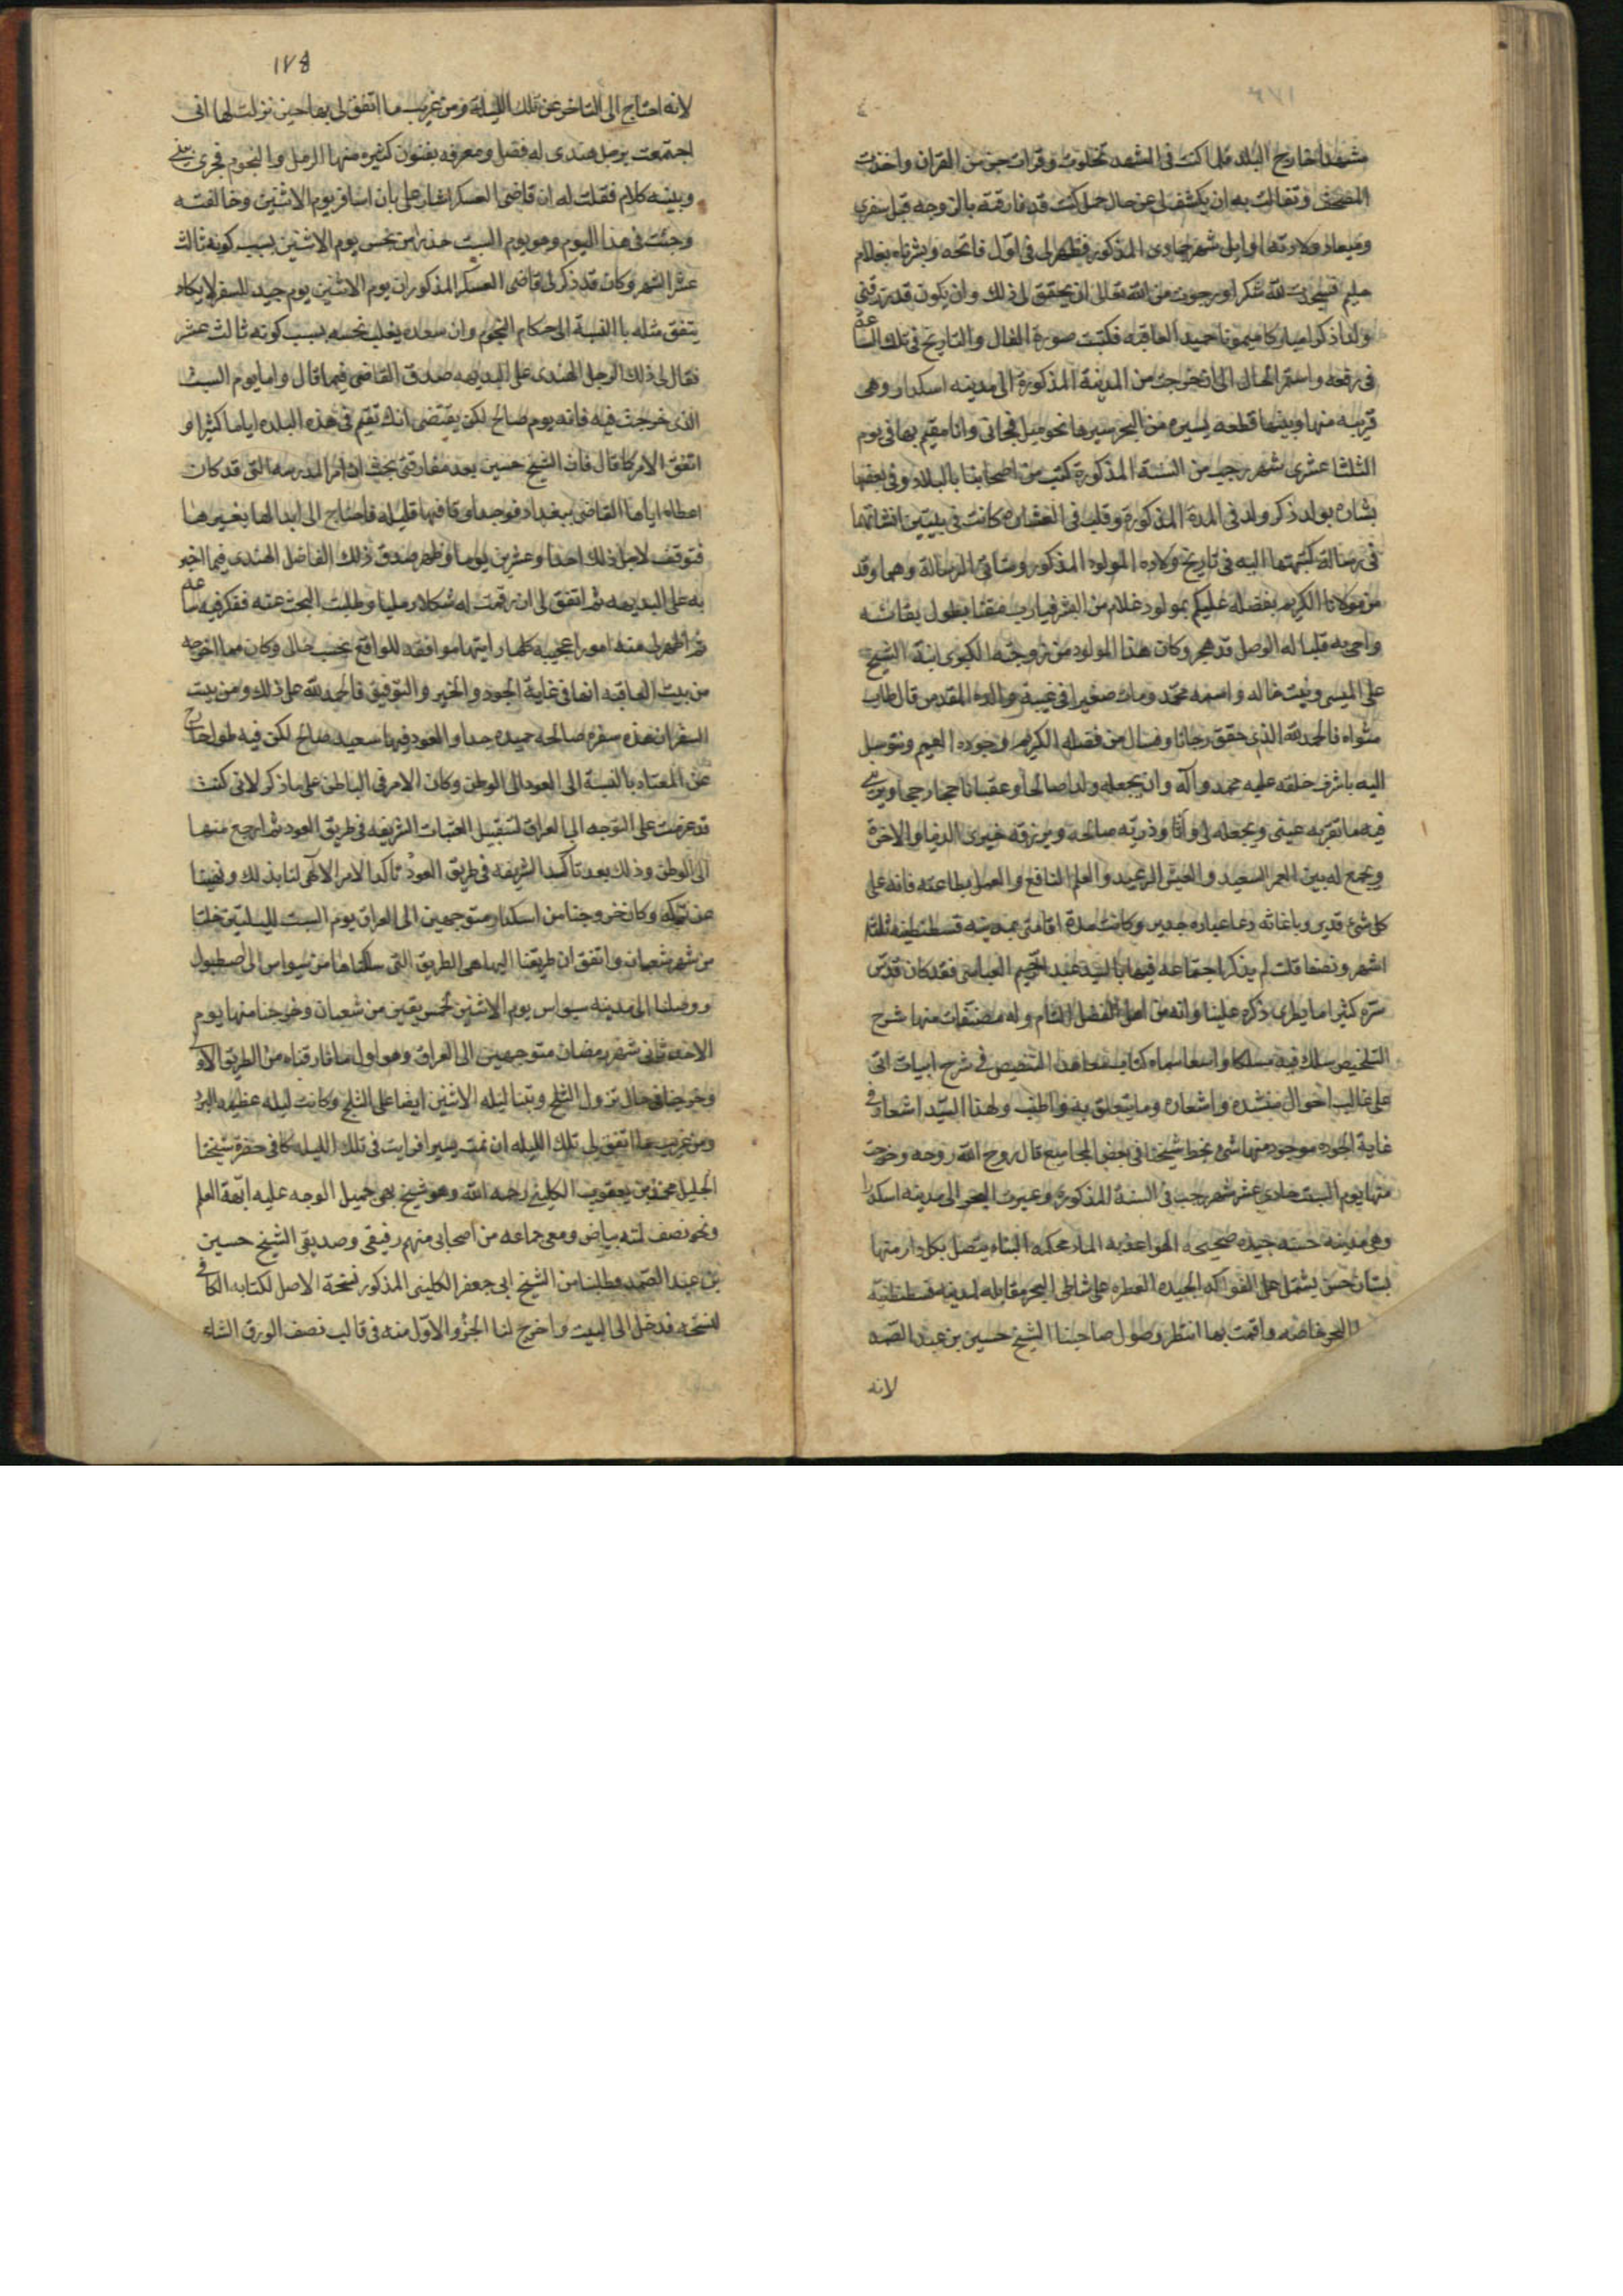 مشهدا خارج البلد فلما كنت في المشهد تخلوت وقرات جزء من القران واخذت
المصحف وتفالت به ان يكشف لي عن حال حمل كنت قد فارقته بالزوجه قبل سفري
وميعاد ولادتها اوايل شهر جمادى المذكور فظهر لي في اول فاتحه وبشرناه بغلام
حليم فسجدت لله شكرا ورجوت من الله تعالى ان يحقق لي ذلك وان يكون قد رزقني
ولدا ذكرا مباركا ميمونا حميد العاقبه فكتبت صورة الفال والتاريخ في تلك الساعه
في رقعه واستمر الحال الى ان خرجت من المدينة المذكورة الى مدينه اسكدار وهى
قريبه منها وبينهما قطعه يسيره من البحر سيرها نحو ميل فجاتني وانا مقيم بها في يوم
الثلثا عشرى شهر رجب من السنة المذكورة كتب من اصحابنا بالبلاد وفي بعضها
بشاره بولد ذكر ولد في المدة المذكورة وقلت في العشاره كانت في بيتين انشاتهما
في رسالة كتبتها اليه في تاريخ ولاده المولود المذكور وساق الرسالة وهما وقد
من مولانا الكريم بفضله عليكم بمولود غلام من البشر فيارب متعنا بطول بقائه
واحي به قلبا له الوصل قد هجر وكان هذا المولود من زوجته الكبرى ابنة الشيخ
على الميسى وبنت خاله واسمه محمد ومات صغيرا في غيبة والده المقدس قال طاب
مثواه فالحمد لله الذى حقق رجانا ونسال من فضله الكريم وجوده العميم ونتوسل
اليه باشرف خلقه عليه محمد وآله وان يجعله ولدا صالحا وعقبا ناجحا راجحا ويريني
فيه ما تقر به عينى ويجعله لى وآثا وذريه صالحه ويرزقه خيرى الدنيا والاخرة
ويجمع له بين العمر السعيد والعيش الرغيد والعلم النافع والعمل بطاعته فانه على
كل شئ قدير وباغاثه دعا عباده جدير وكانت مدة اقامتى بمدينه قسطنطينيه ثلثة
اشهر ونصفا قلت لم يذكر اجتماعه فيها بالسيد عبد الرحيم العباسى فقد كان قدس
سره كثيرا ما يطرى ذكره علينا وانه من اهل الفضل التام وله مصنفات منها شرح
التلخيص سلك فيه مسلكا واسعا سماه كتاب معاهد التنصيص في شرح ابيات اتى
على غالب احوال منشده واشعاره وما يتعلق به واطنب ولهذا السيد اشعار في
غاية الجوده موجود منها شى بخط شيخنا في بعض المجاميع قال روح الله روحه وخرجت
منها يوم السبت حادى عشر شهر رجب في السنة المذكورة وعبرت البحر الى مدينه اسكدار
وهى مدينه حسنه جيده صحيحه الهوا عذبه الماء محكمه البناء يتصل بكل دار منها
بستان حسن يشتمل على الفواكه الجيده العطره على شاطى البحر مقابله لمدينه قسطنطنية
البحر خاصه واقمت بها انتظر وصول صاحبنا الشيخ حسين بن عبد الصمد
لانه
١٧٥
لانه احتاج الى التاخر عن تلك الليلة ومن غريب ما اتفق لى بها حين نزلت لها انى
اجتمعت برجل هندى له فضل ومعرفه بفنون كثيره منها الرمل والنجوم فجرى بيني
وبينه كلام فقلت له ان قاضى العسكر اشار على بان اسافر يوم الاثنين وخالفته
وجئت في هذا اليوم وهو يوم السبت حذرا من نحس يوم الاثنين بسبب كونه ثالث
عشر الشهر وكان قد ذكر لى قاضى العسكر المذكور ان يوم الاثنين يوم جيد للسفر لا يكاد
يتفق مثله بالنسبة الى احكام النجوم وان سعده يغلب نحسه بسبب كونه ثالث عشر
فقال لى ذلك الرجل الهندى على البديهه صدق القاضى فيما قال واما يوم السبت
الذى خرجت فيه فانه يوم صالح لكن يقتضى انك تقيم في هذه البلده اياما كثيرا و
اتفق الامر كما قال فان الشيخ حسين بعد مفارقتى بحث ان امر المدرسه التى قد كان
اعطاه اياها القاضى ببغداد فوجد اوقافها قليله فاحتاج الى ابدالها بغيرها
فتوقف لاجل ذلك احدا وعشرين يوما وظهر صدق ذلك الفاضل الهندى فيما اخبر
به على البديهه ثم اتفق لى ان رقمت له شكلا رمليا وطلبت البحث عنه ففكر فيه ساعه
ثم اظهر لى منه امورا عجيبه كلها رايتها موافقه للواقع بحسب حالى وكان مما اخرجه
من بيت العاقبه انها في غاية الجود والخير والتوفيق فالحمد لله على ذلك ومن بيت
السفر ان هذه سفره صالحه حميده جدا والعود فيها سعيد صالح لكن فيه طول خارج
عن المعتاد بالنسبة الى العود الى الوطن وكان الامر في الباطن على ما ذكر لانى كنت
قد عزمت على التوجه الى العراق لتقبيل العتبات الشريفه في طريق العود ثم ارجع منها
الى الوطن وذلك بعد تاكيد الشريفه في طريق العود تاكد الامر الالهى لنا بذلك ونهينا
عن تركه وكان خروجنا من اسكدار متوجهين الى العراق يوم السبت لليلتين خلتا
من شهر شعبان واتفق ان طريقنا اليها هى الطريق التى سلكناها من سيواس الى اصطنبول
ووصلنا الى مدينه سيواس يوم الاثنين لخمس بقين من شعبان وخرجنا منها يوم
الاحد ثانى شهر رمضان متوجهين الى العراق وهو اول ما فارقناه من الطريق الاول
وخرجنا في حال نزول الثلج وبتنا ليله الاثنين ايضا على الثلج وكانت ليله عظيمه البرد
ومن غريب ما اتفق لى تلك الليله ان نمت يسيرا فرايت في تلك الليله كانى في حضرة شيخنا
الجليل محمد بن يعقوب الكلينى رحمه الله وهو شيخ بهى جميل الوجه عليه ابهة العلم
ونحو نصف لمته بياض ومعى جماعه من اصحابى منهم رفيقى وصديقى الشيخ حسين
بن عبد الصمد وطلبنا من الشيخ ابى جعفر الكلينى المذكور نسخة الاصل لكتابه الكافي
لننسخه فدخل الى البيت واخرج لنا الجزؤ الاول منه في قالب نصف الورق الشامي